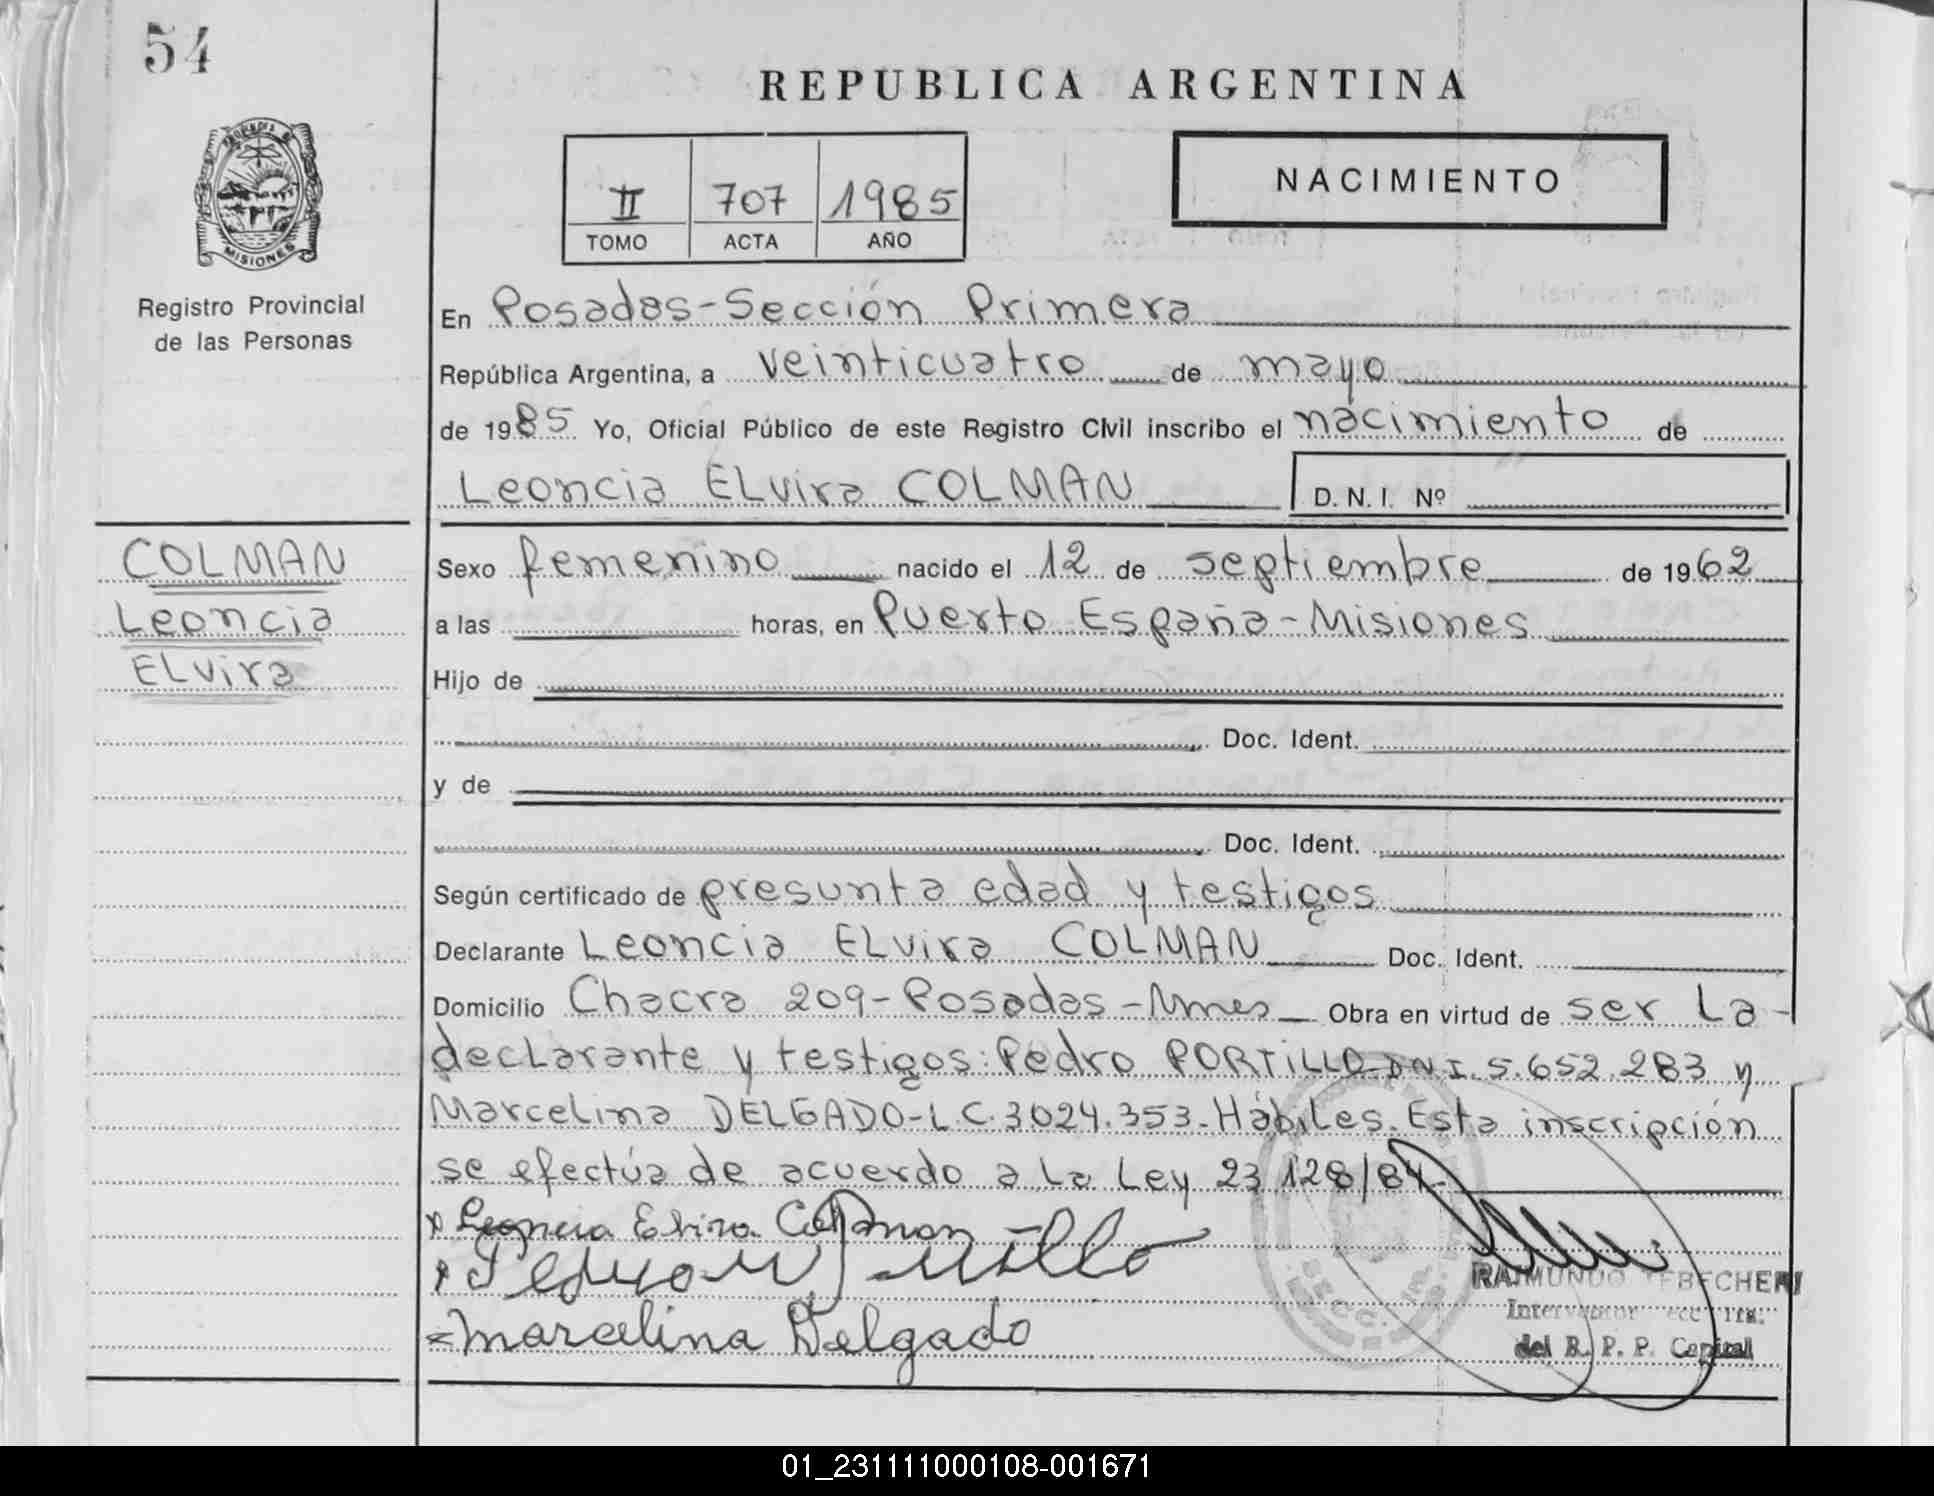 54
REPUBLICA ARGENTINA
II 707 1985
TOMO ACTA AÑO
NACIMIENTO
MISIONES
Registro Provincial
de las Personas
En Posadas-Sección Primera
República Argentina, a veinticuatro de mayo
de 1985 Yo, Oficial Público de este Registro Civil inscribo el nacimiento de
Leoncia ELvira COLMAN D. N. I. Nº
COLMAN
Leoncia
ELvira
Sexo femenino nacido el 12 de septiembre de 1962
a las horas, en Puerto España-Misiones
Hijo de
Doc. Ident.
y de
Doc. Ident.
Según certificado de presunta edad y testigos
Declarante Leoncia ELvira COLMAN Doc. Ident.
Domicilio Chacra 209-Posadas-Mnes Obra en virtud de ser La
declarante y testigos: Pedro PORTILLO DNI. 5.652.283 y
Marcelina DELGADO-L.C. 3024.353-Hábiles. Esta inscripción
se efectúa de acuerdo a La Ley 23 128/84.
x Leoncia Elvira Colman
x Pedro Portillo
Marcelina Delgado
RAIMUNDO
Interventor
del R. P. P. Capital
01_231111000108-001671